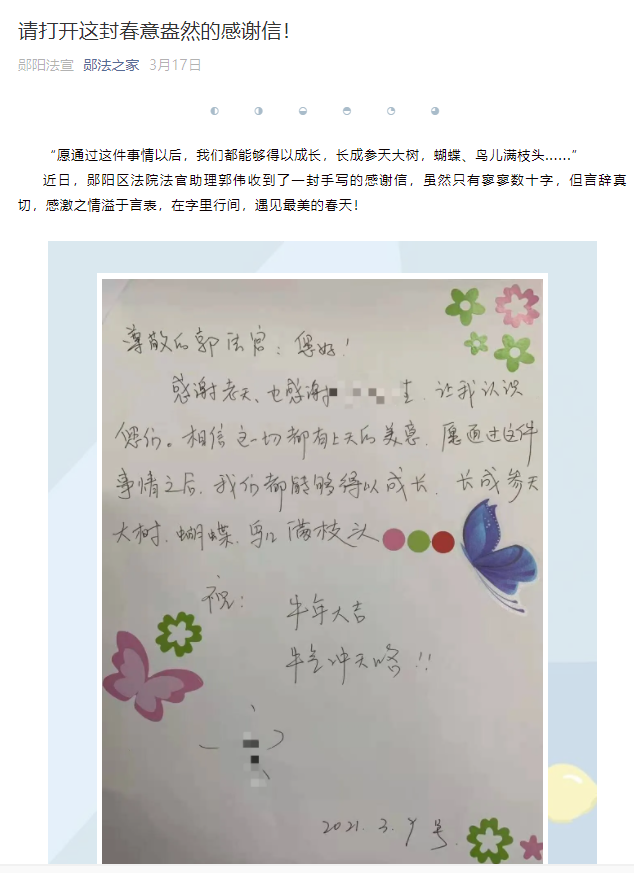 请打开这封春意盎然的感谢信！
郧阳法宣 郧法之家 3月17日
“愿通过这件事情以后，我们都能够得以成长，长成参天大树，蝴蝶、鸟儿满枝头......”
近日，郧阳区法院法官助理郭伟收到了一封手写的感谢信，虽然只有寥寥数十字，但言辞真
切，感激之情溢于言表，在字里行间，遇见最美的春天！
尊敬的郭法官：您好！
感谢老天、也感谢 让我认识
您们。相信这一切都有上天的美意。愿通过这件
事情之后，我们都能够得以成长。长成参天
大树、蝴蝶、鸟儿满枝头
祝：
牛年大吉
牛气冲天咯！！
2021.3. 号